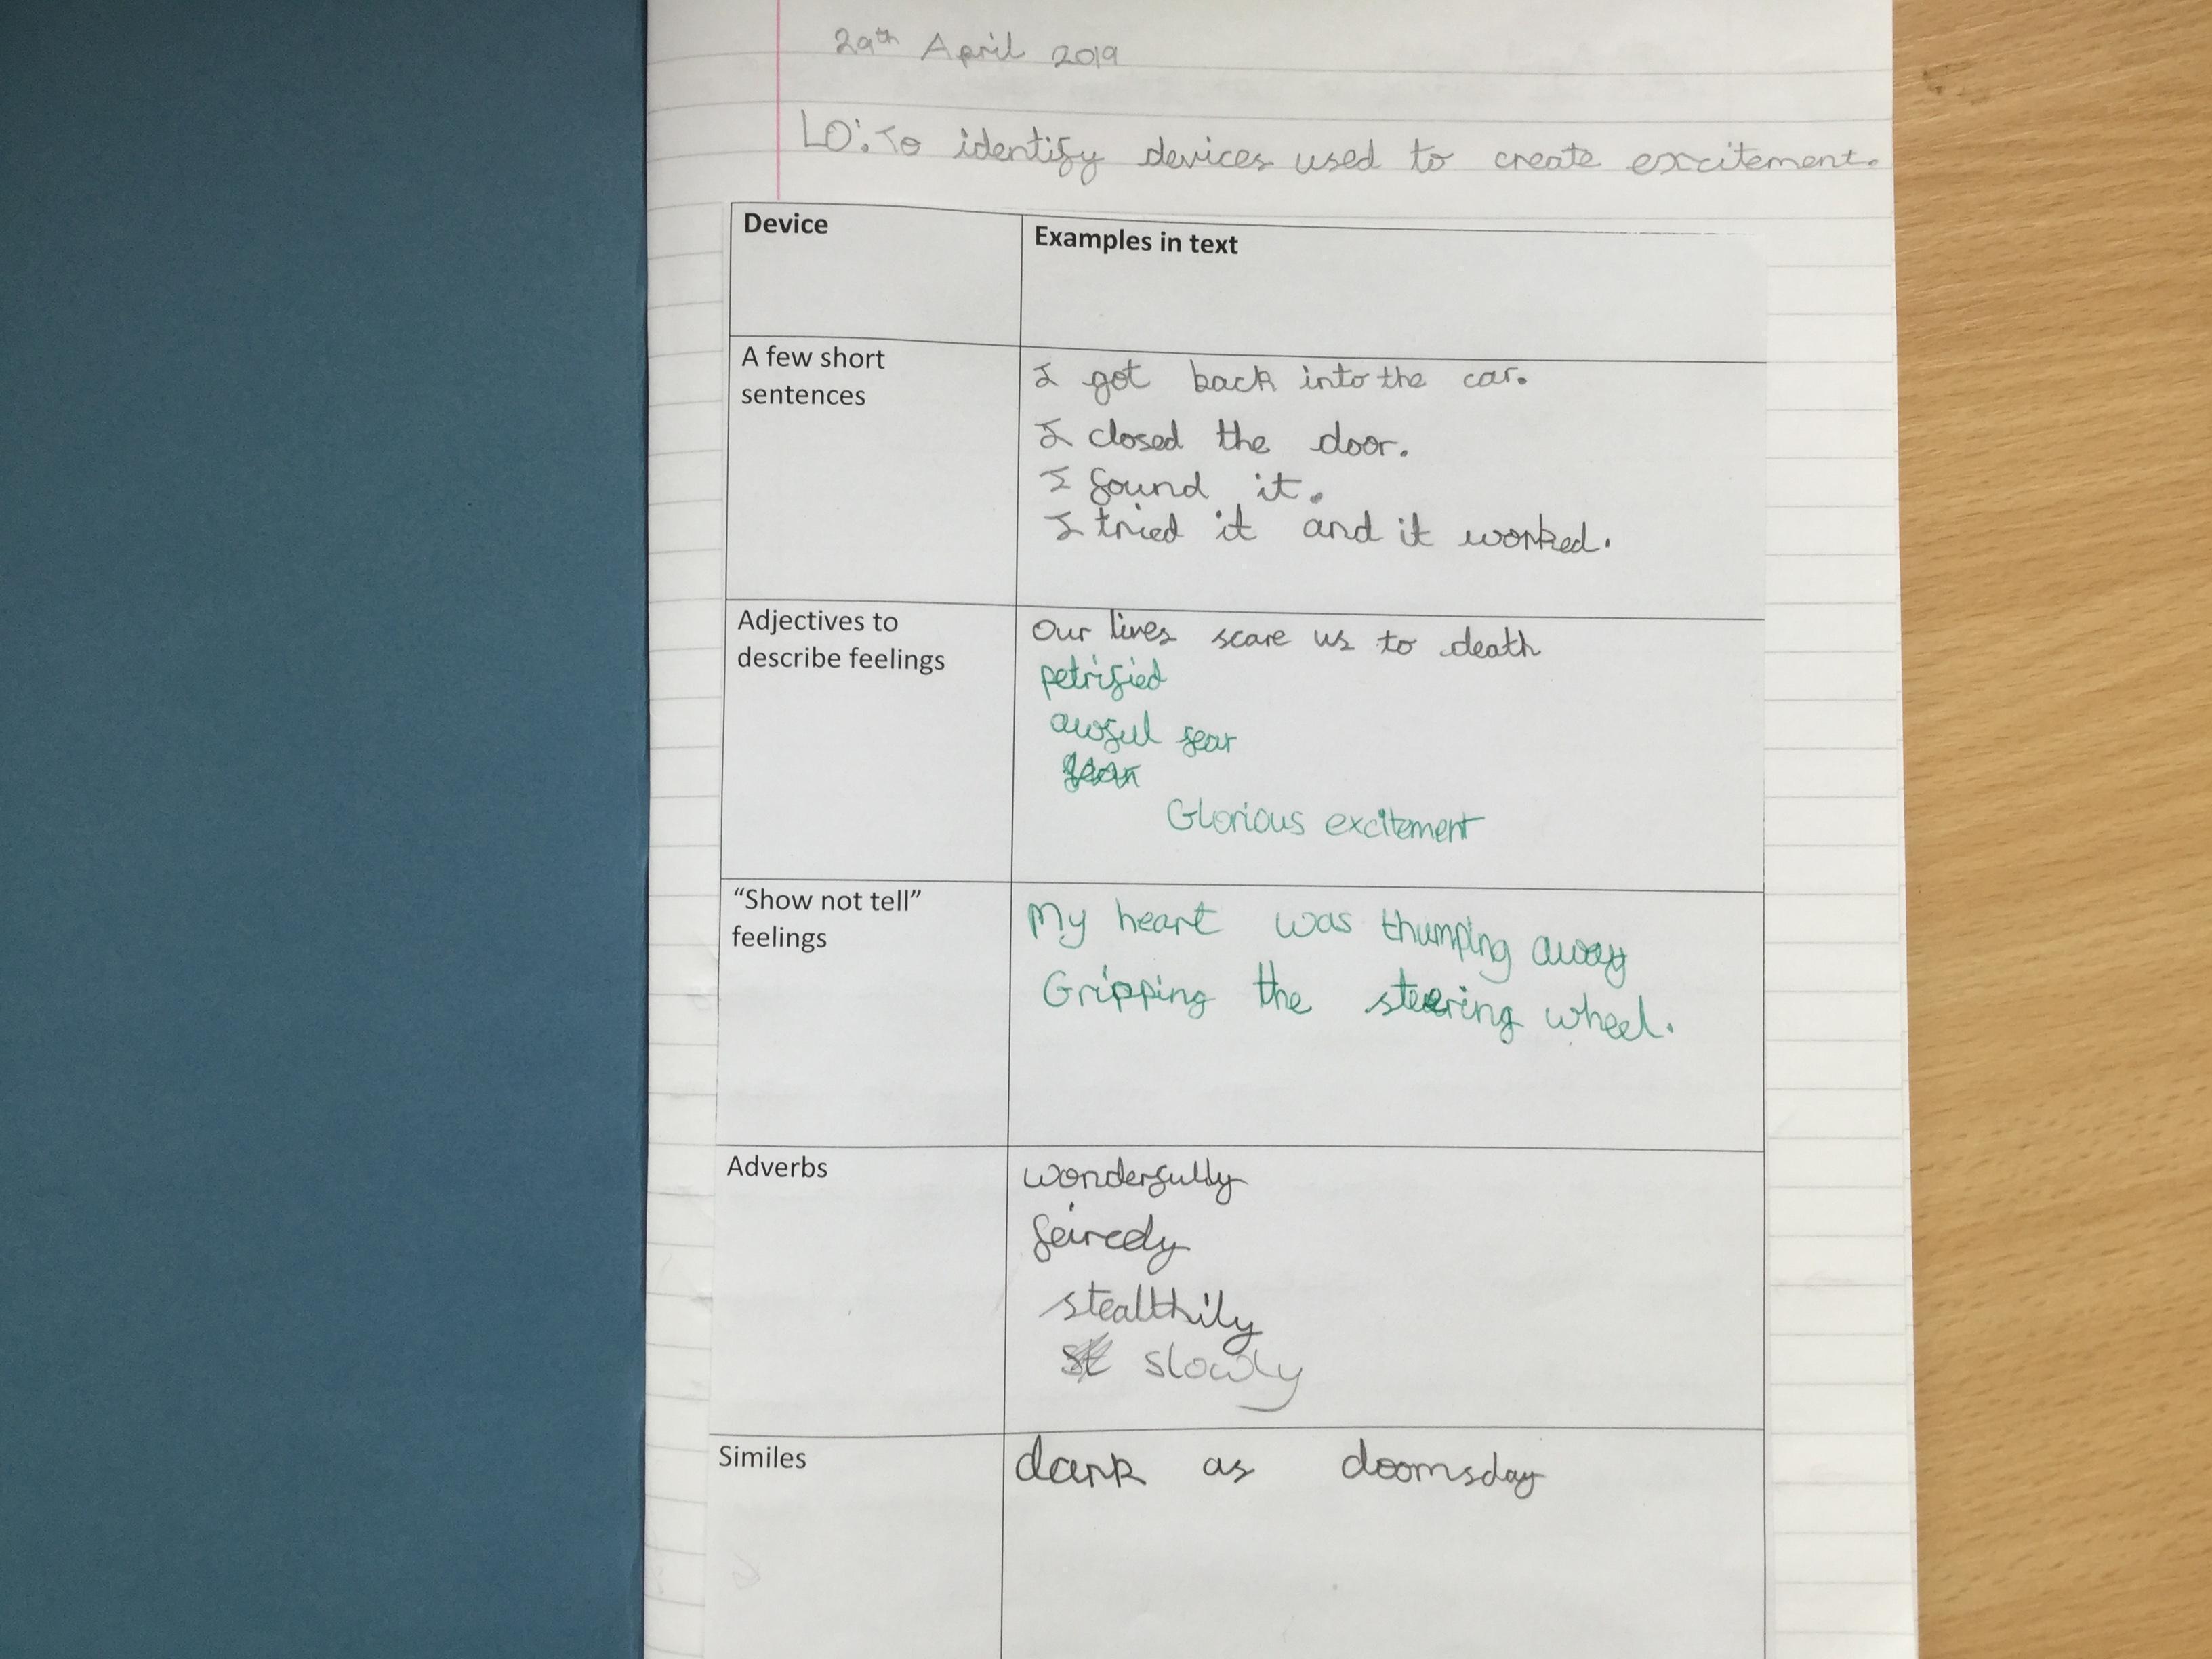 29th April 2019
LO: To identify devices used to create excitement.
Device
Examples in text
A few short
sentences
I got back into the car.
I closed the door.
I found it.
I tried it and it worked.
Adjectives to
describe feelings
Our lives scare us to death
petrified
awful fear
Glorious excitement
“Show not tell”
feelings
My heart was thumping away
Gripping the steering wheel.
Adverbs
wonderfully
feircely
stealthily
slowly
Similes
dark as doomsday